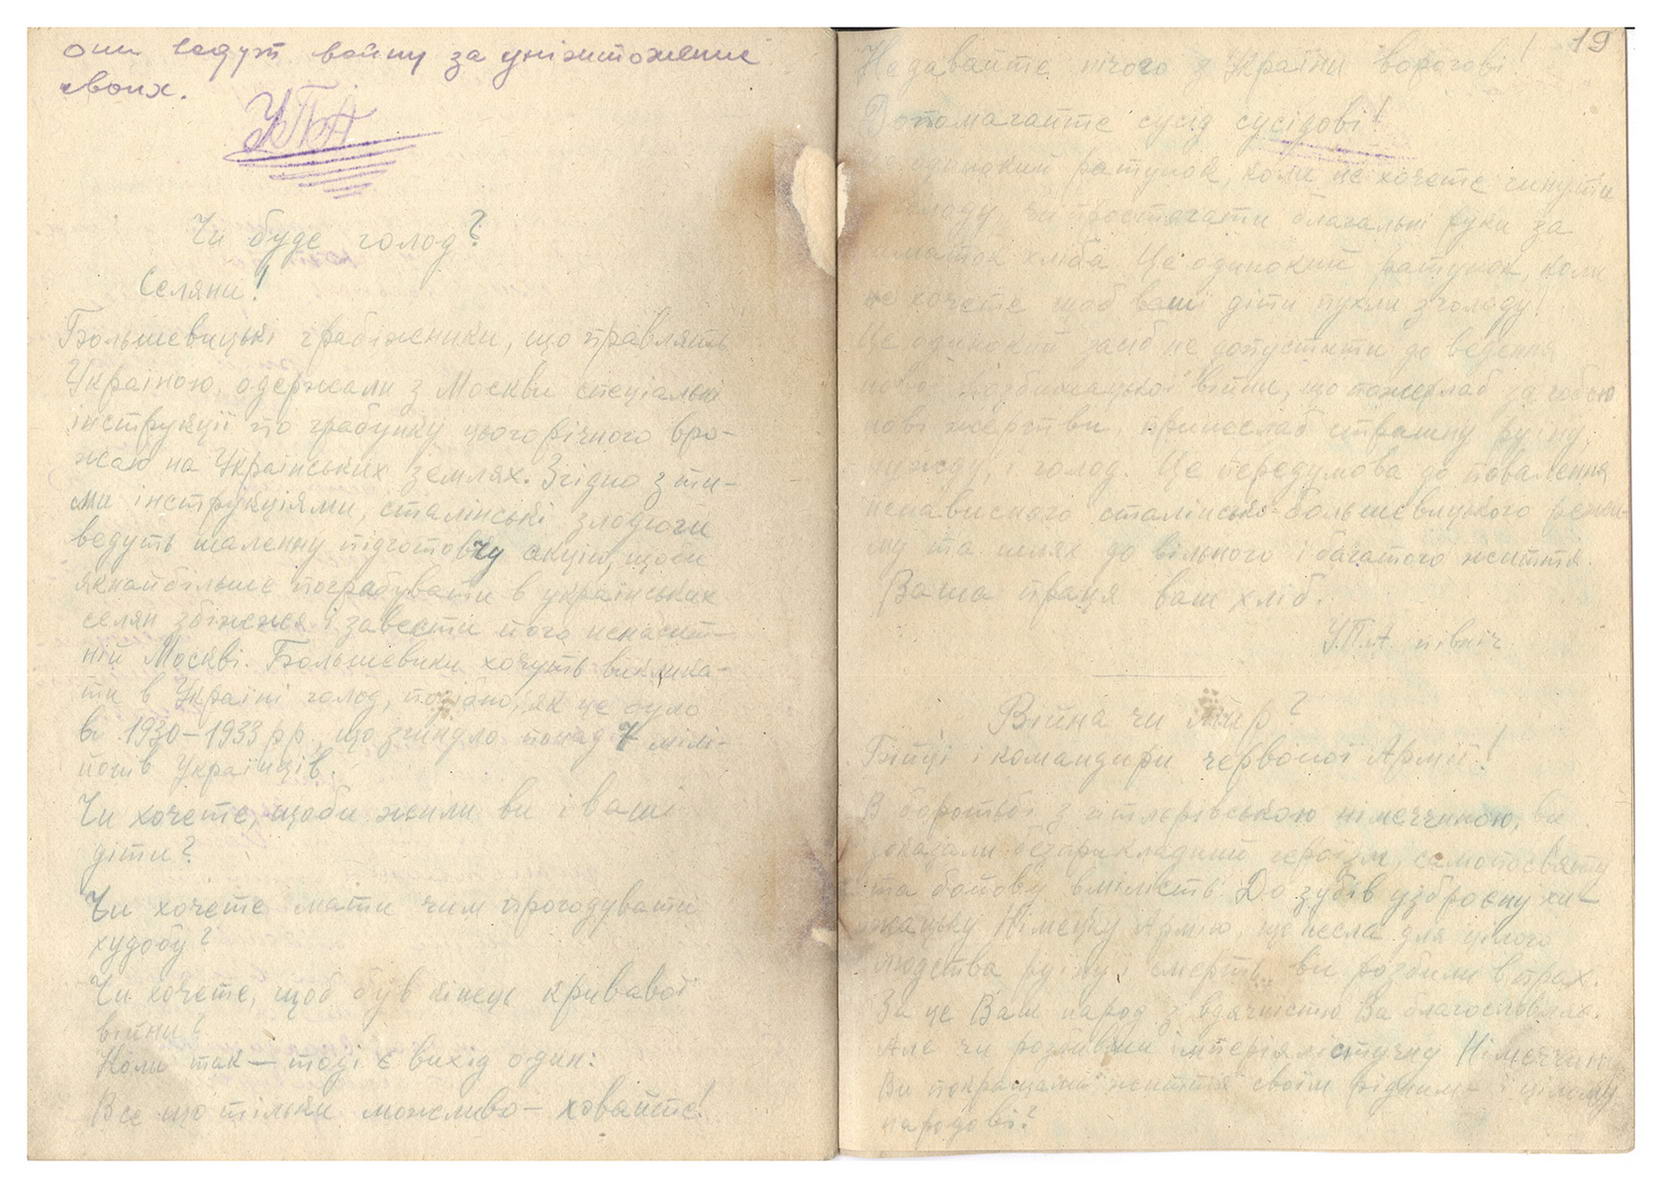 они ведут войну за уніжтожение
своих.
УПА
Чи буде голод?
Селяни!
Большевицькі грабіжники, що правлять
Україною, одержали з Москви спеціальні
інструкції по грабунку цьогорічного вро-
жаю на Українських землях. Згідно з ти-
ми інструкціями, сталінські злодюги
ведуть шаленну підготовчу акцію, щоби
якнайбільше пограбувати в українських
селян збіжжя і завезти його ненасит-
ній Москві. Большевики хочуть виклика-
ти в Україні голод, подібно, як це було
в 1930–1933 рр, що згинуло понад 7 мілі-
йонів Українців.
Чи хочете, щоби жили ви і ваші
діти?
Чи хочете мати чим прогодувати
худобу?
Чи хочете, щоб був кінець кривавої
війни?
Коли так — тоді є вихід один:
Все що тільки можливо — ховайте!
19
Не давайте нічого з України ворогові!
Допомагайте сусід сусідові!
одинокий ратунок, коли не хочете гинути
голоду, чи простягати благальні руки за
шматок хліба. Це одинокий ратунок, коли
не хочете щоб ваші діти пухли з голоду!
Це одинокий засіб не допустити до ведення
нової війни, що пожерлаб за собою
нові жертви, принеслаб страшну руїну,
нужду, і голод. Це передумова до повалення
ненависного сталінсько-большевицького режи-
му та шлях до вільного і багатого життя.
Ваша праця ваш хліб.
У.П.А. північ.
Війна чи мир?
Бійці і командири червоної Армії!
В боротьбі з гітлерівською німеччиною, ви
показали безприкладний героїзм, самопосвяту
та бойову вмілість. До зубів узброєну хи-
жацьку Німецьку Армію, що несла для цілого
людства руїну і смерть ви розбили в прах.
За це Ваш народ з вдячністю Ва благословляє.
Але чи розбивши імперіялістичну Німеччину
Ви покращали життя своїм рідним — і цілому
народові?